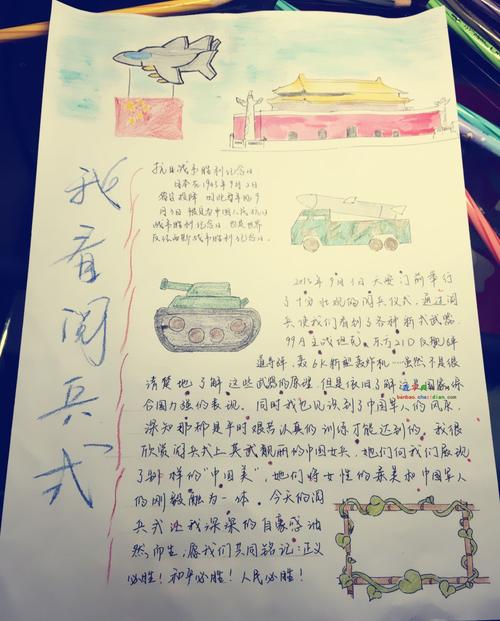 我看阅兵式
抗日战争胜利纪念日
日本在1945年9月2日
签字投降 因此每年的9
月3日被定为中国人民抗日
战争胜利纪念日 也是世界
反法西斯战争胜利纪念日。
2015年9月3日天安门前举行
了十分壮观的阅兵仪式,通过阅
兵使我们看到了各种新式武器
99A主战坦克、东方21D反舰弹
道导弹、轰6K新型轰炸机……虽然不是很
清楚地了解这些武器的原理,但是依旧了解这是国家综
合国力强的表现。同时我也见识到了中国军人的风采,
深知那都是平时艰苦认真的训练才能达到的。我很
欣赏阅兵式上英武靓丽的中国女兵,她们向我们展现
了别样的“中国美”,她们将女性的柔美和中国军人
的刚毅融为一体。今天的阅
兵式让我深深的自豪感油
然而生,愿我们共同铭记:正义
必胜!和平必胜!人民必胜!
banbao.chazidian.com